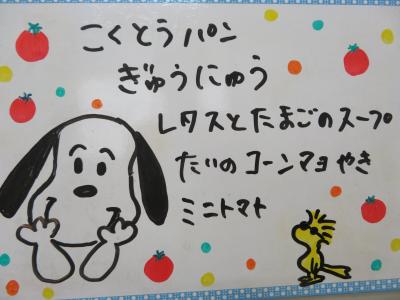 こくとうパン
ぎゅうにゅう
レタスとたまごのスープ
たいのコーンマヨやき
ミニトマト